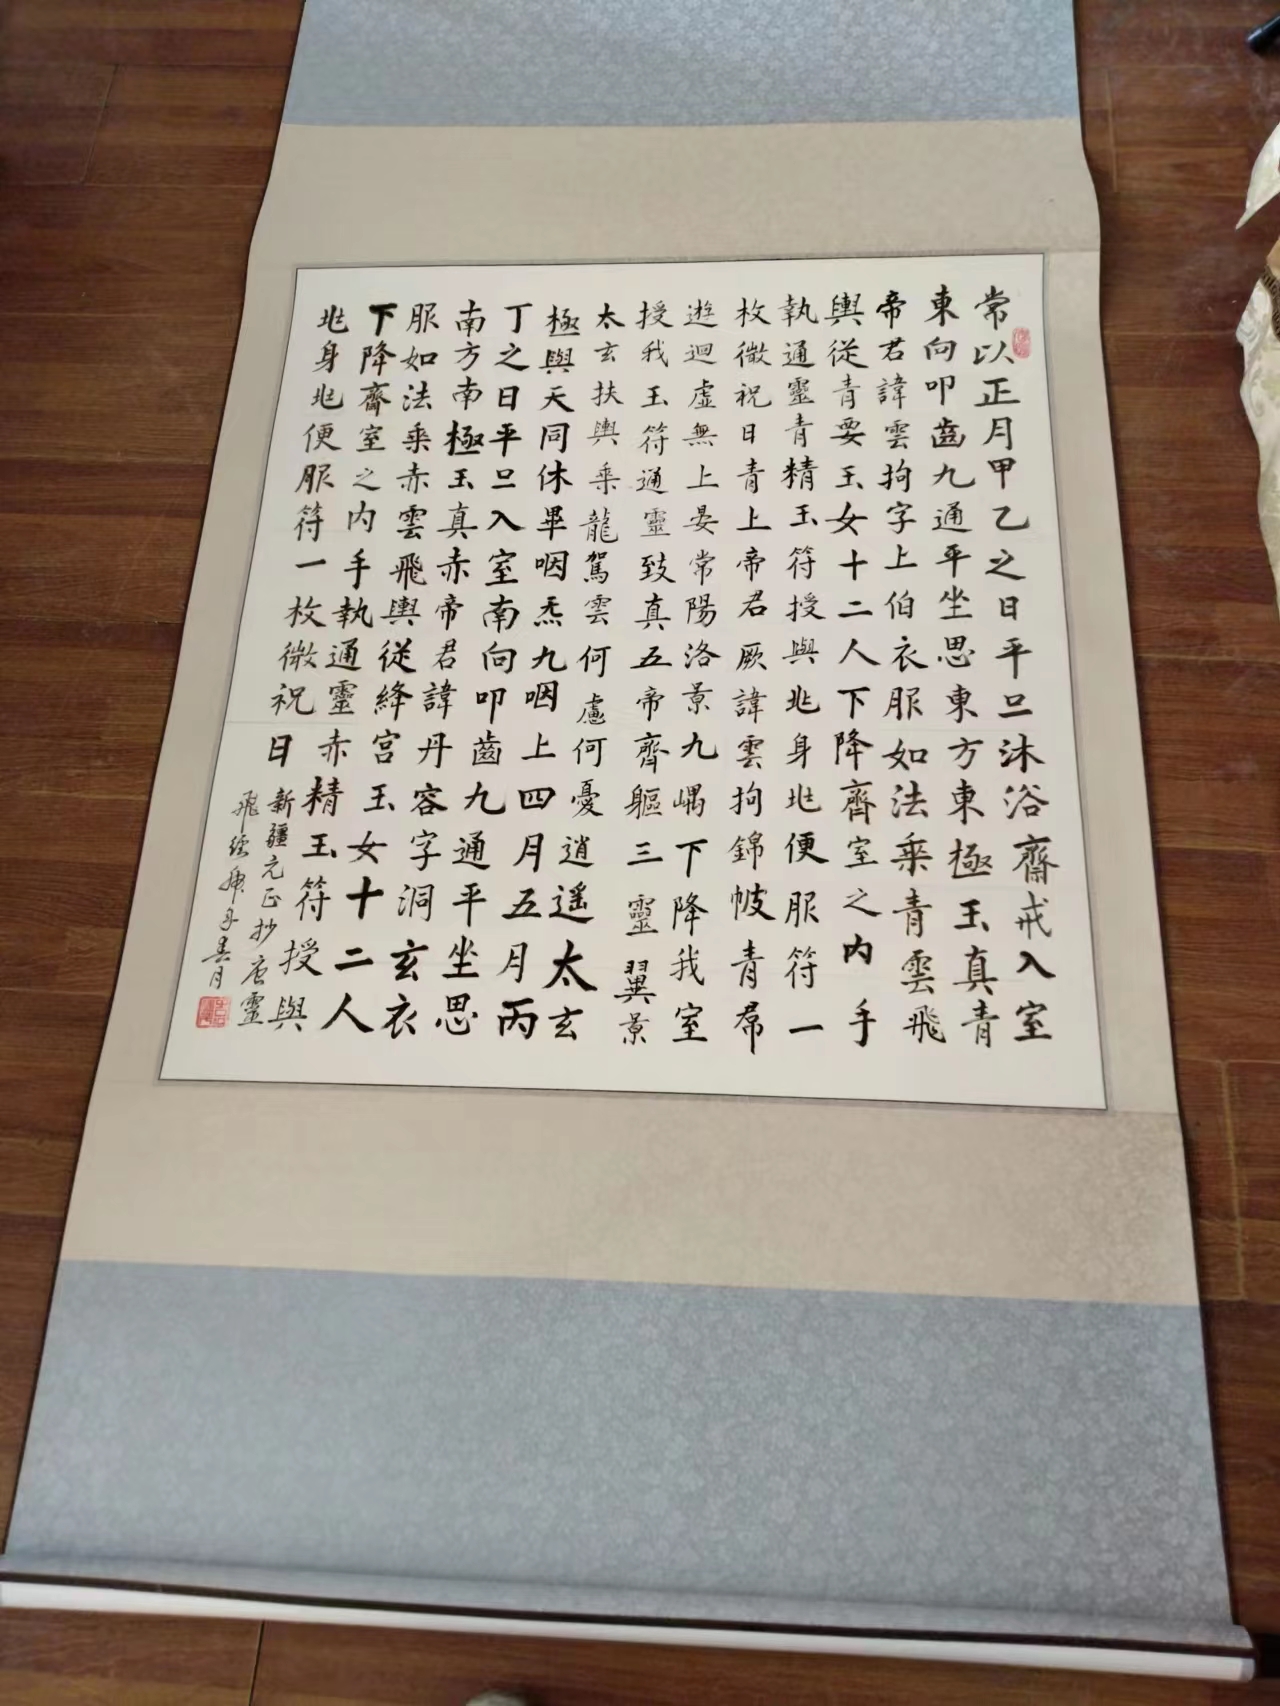 常以正月甲乙之日平旦沐浴齋戒入室
東向叩齒九通平坐思東方東極玉真青
帝君諱雲拘字上伯衣服如法乘青雲飛
輿從青要玉女十二人下降齊室之內手
執通靈青精玉符授與兆身兆便服符一
枚微祝日青上帝君厥諱雲拘錦帔青帬
遊迴虛無上晏常陽洛景九嵎下降我室
授我玉符通靈致真五帝齊軀三靈翼景
太玄扶輿乘龍駕雲何慮何憂逍遥太玄
極與天同休畢咽炁九咽上四月五月丙
丁之日平旦入室南向叩齒九通平坐思
南方南極玉真赤帝君諱丹容字洞玄衣
服如法乘赤雲飛輿從絳宮玉女十二人
下降齋室之内手執通靈赤精玉符授與
兆身兆便服符一枚微祝日
新疆元正抄唐靈
飛經 月